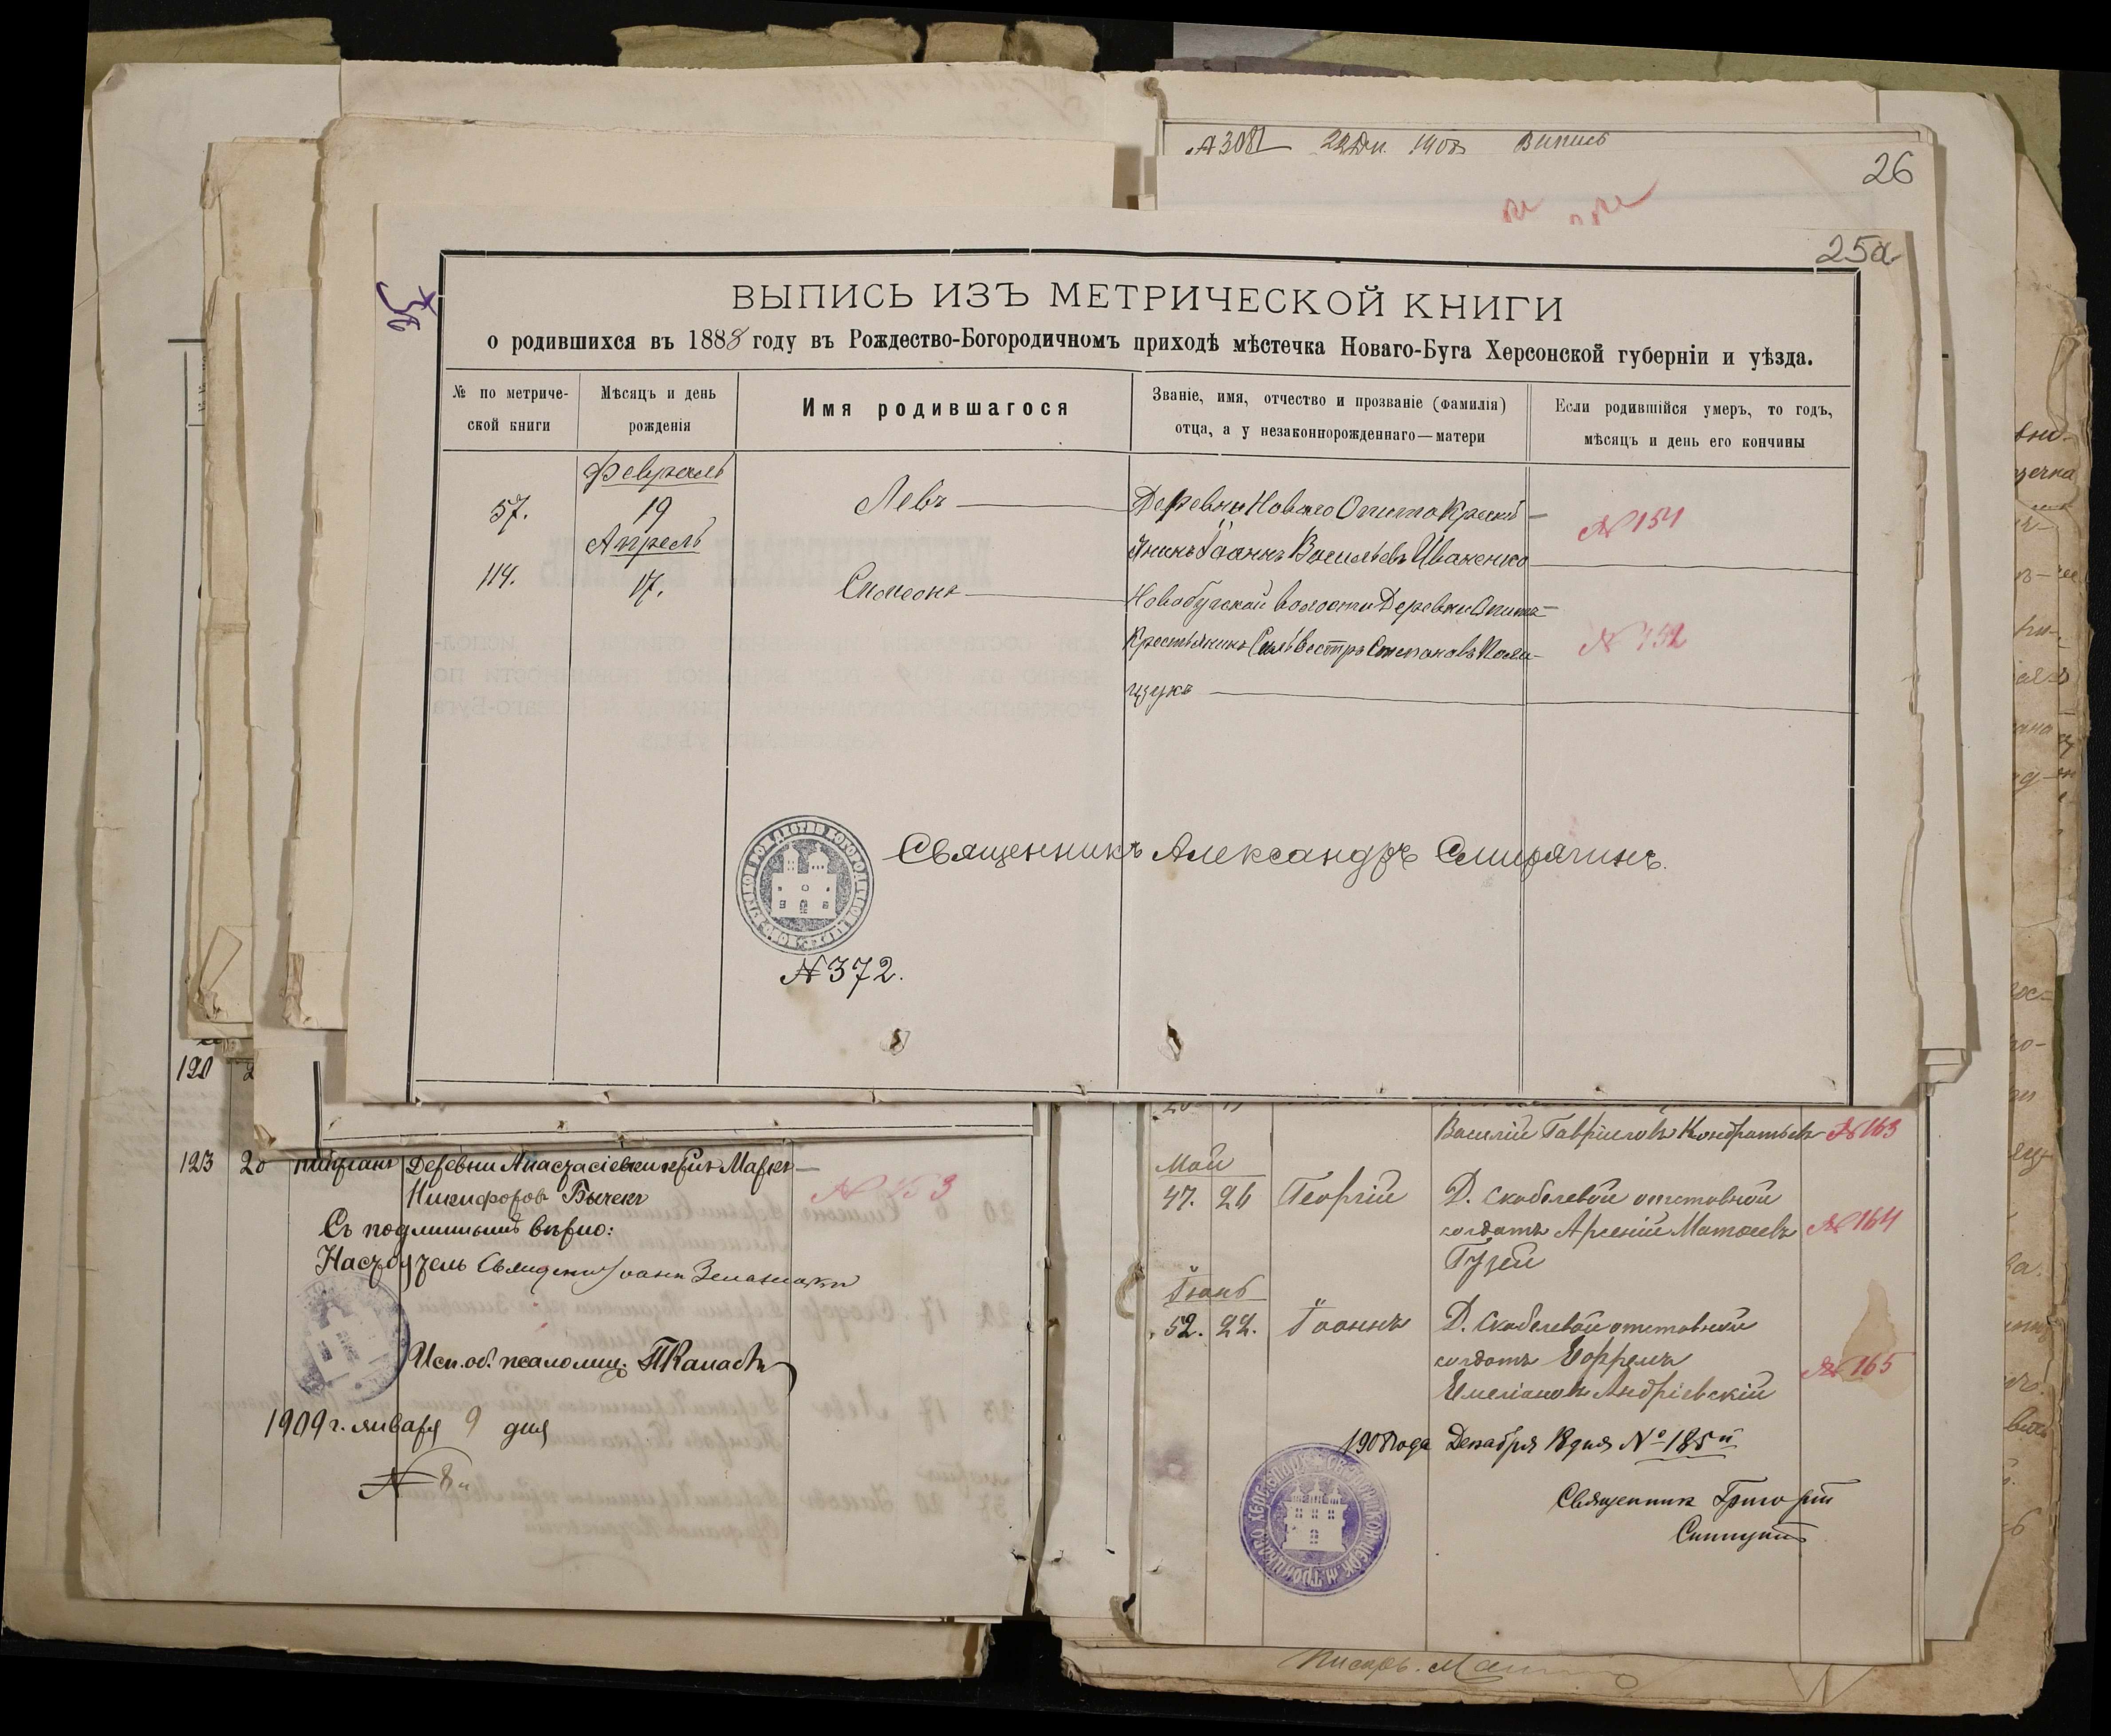 № 308 22 Дек. 1908 Выпись
26
25а
ВЫПИСЬ ИЗЪ МЕТРИЧЕСКОЙ КНИГИ
о родившихся въ 1888 году въ Рождество-Богородичномъ приходѣ мѣстечка Новаго-Буга Херсонской губерніи и уѣзда.
№ по метриче-
ской книги
Мѣсяцъ и день
рожденія
Имя родившагося
Званіе, имя, отчество и прозваніе (фамилія)
отца, а у незаконнорожденнаго—матери
Если родившійся умеръ, то годъ,
мѣсяцъ и день его кончины
Февраль
57. 19 Левъ Деревни Новаго
янинъ Іоаннъ Васильевъ Иваненко
№ 151
Апрель
114. 17. Симеонъ Новобугской волости Деревни
Крестьянинъ Сильвестръ Степановъ Поли-
щукъ
№ 152
Священникъ Александръ Смирягинъ.
№ 372.
120
123 20 Деревни Анастасіевки кр-нъ Маркъ
Никифоровъ Бычекъ
№ 153
Съ подлиннымъ вѣрно:
Настоятель Священ. Іоаннъ
Исп. об. псаломщ.
1909 г. января 9 дня
№ 8
Василій Гавріиловъ Кондратьевъ № 163
Май
47. 26 Георгій Д. Скобелевой отставной
солдатъ Арсеній Матвѣевъ № 164
Гузей
Іюнь
52. 22. Іоаннъ Д. Скобелевой отставной
солдатъ Ефремъ
Емеліановъ Андріевскій № 165
1908 года Декабря 18 дня № 185й
Священникъ Григорій
Писарь